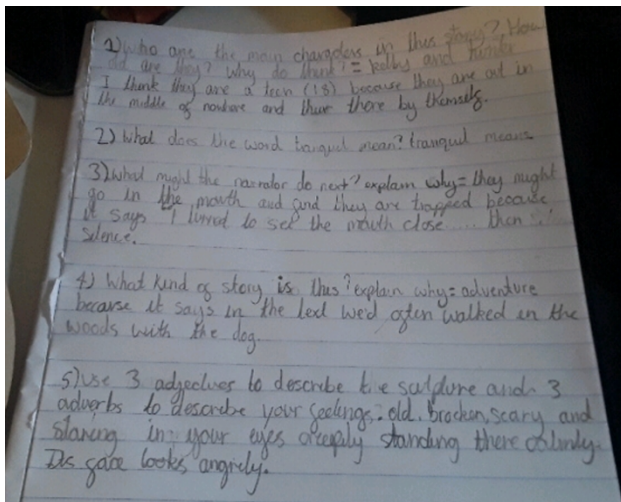 1) who are the main characters in this story? How
old are they? why do think? = kelby and hunter
I think they are a teen (18) because they are out in
the middle of nowhere and thure there by themselfs.
2) What does the word tranquil mean? tranquil means
3) what might the narrator do next? explain why = they might
go in the mouth and find they are trapped because
it says I turned to see the mouth close .... then ...
silence.
4) What kind of story is this? explain why = adventure
because it says in the text we'd often walked in the
woods with the dog.
5) use 3 adjectives to describe the sculpture and 3
adverbs to describe your feelings = old, brocken, scary and
staring in your eyes creeply standing there calmly.
Its face looks angrely.